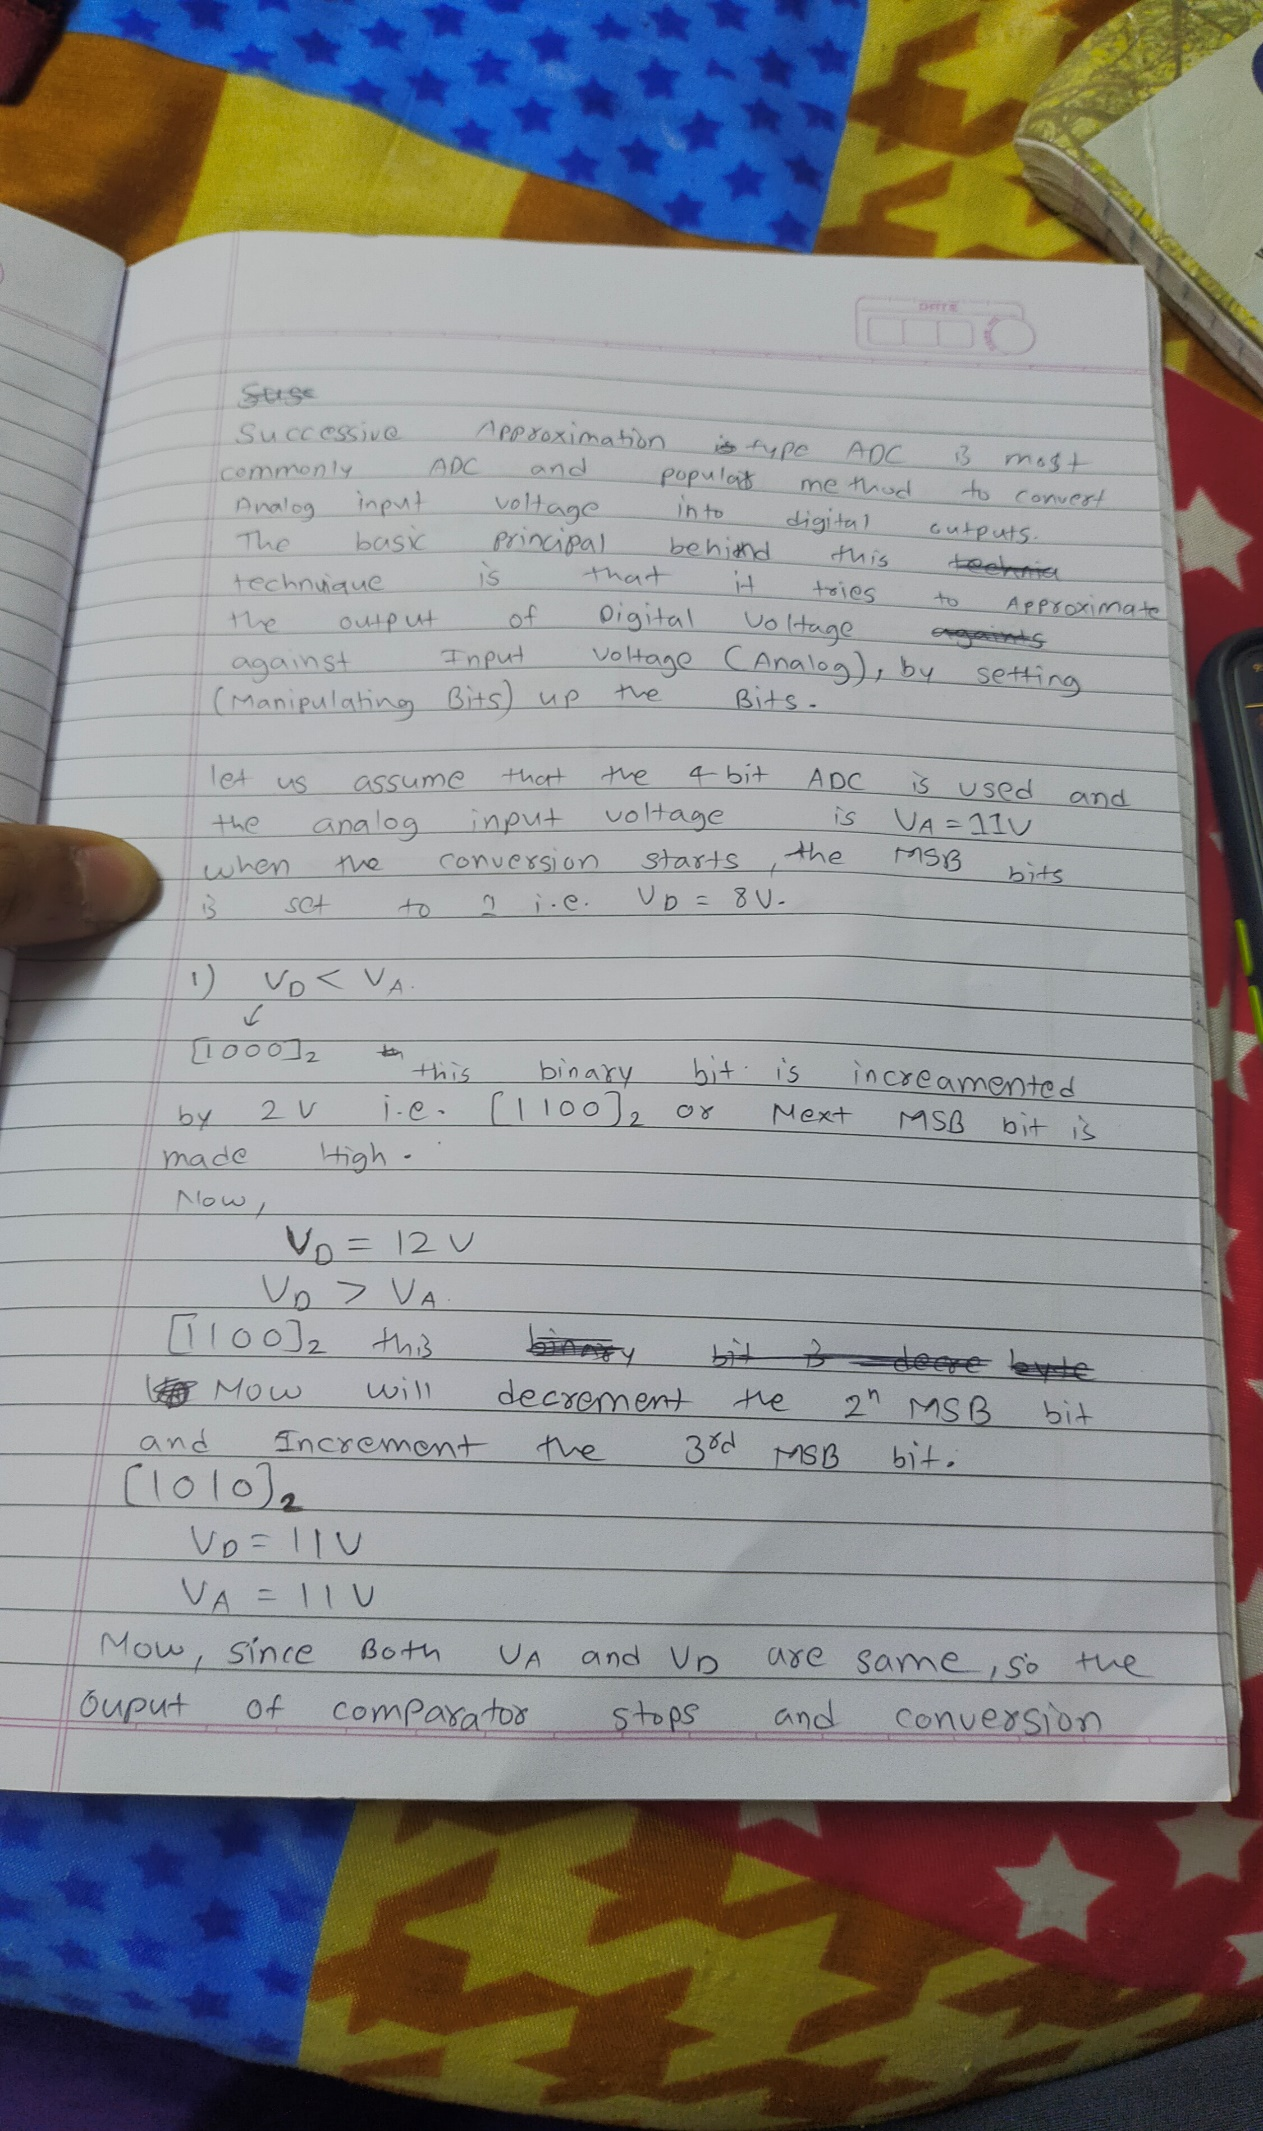 DATE
Successive Approximation type ADC is most
commonly ADC and popular method to convert
Analog input voltage into digital outputs.
The basic principal behind this
technique is that it tries to Approximate
the output of Digital voltage
against Input voltage (Analog), by setting
(Manipulating Bits) up the Bits.
let us assume that the 4 bit ADC is used and
the analog input voltage is VA = 11V
when the conversion starts, the MSB bits
is set to 1 i.e. VD = 8V.
1) VD < VA.
↙
[1000]2 this binary bit is increamented
by 2V i.e. [1100]2 or Next MSB bit is
made High.
Now,
VD = 12V
VD > VA.
[1100]2 this
Now will decrement the 2n MSB bit
and Increment the 3rd MSB bit.
[1010]2
VD = 11V
VA = 11V
Now, since Both VA and VD are same, so the
Ouput of comparator stops and conversion